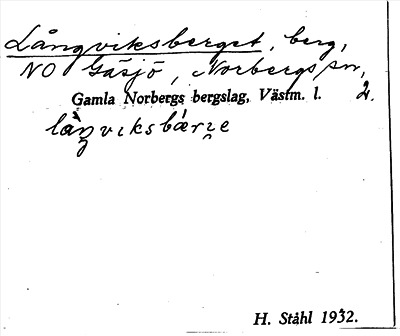 Långviksberget, berg,
NO Gäsjö, Norbergs sn,
Gamla Norbergs bergslag, Västm. l. 2.
làŋviksbárɪe
H. Ståhl 1932.